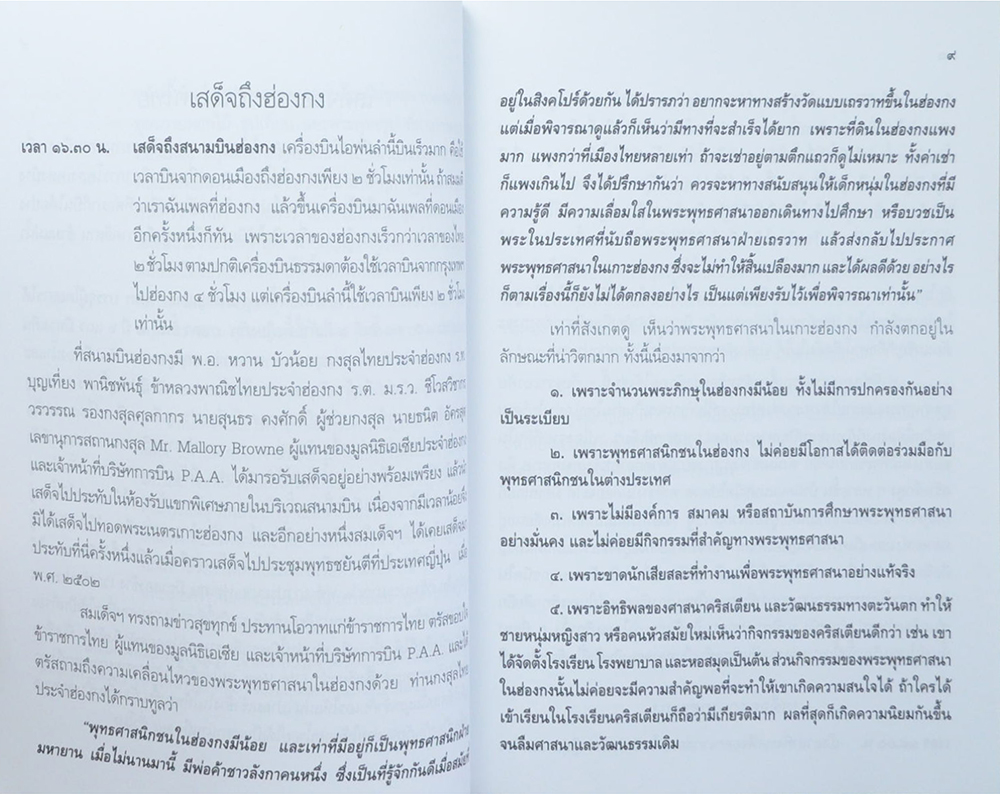 เสด็จถึงฮ่องกง
เวลา ๑๖.๓๐ น. เสด็จถึงสนามบินฮ่องกง เครื่องบินไอพ่นลำนี้บินเร็วมาก คือใช้
เวลาบินจากดอนเมืองถึงฮ่องกงเพียง ๒ ชั่วโมงเท่านั้น ถ้าสมมติ
ว่าเราฉันเพลที่ฮ่องกง แล้วขึ้นเครื่องบินมาฉันเพลที่ดอนเมือง
อีกครั้งหนึ่งก็ทัน เพราะเวลาของฮ่องกงเร็วกว่าเวลาของไทย
๒ ชั่วโมง ตามปกติเครื่องบินธรรมดาต้องใช้เวลาบินจากกรุงเทพฯ
ไปฮ่องกง ๔ ชั่วโมง แต่เครื่องบินลำนี้ใช้เวลาบินเพียง ๒ ชั่วโมง
เท่านั้น
ที่สนามบินฮ่องกงมี พ.อ. หวาน บัวน้อย กงสุลไทยประจำฮ่องกง
บุญเที่ยง พานิชพันธุ์ ข้าหลวงพาณิชไทยประจำฮ่องกง ร.ต. ม.ร.ว. ชีโวสวิชากร
วรวรรณ รองกงสุลศุลกากร นายสุนธร คงศักดิ์ ผู้ช่วยกงสุล นายธนิต
เลขานุการสถานกงสุล Mr. Mallory Browne ผู้แทนของมูลนิธิเอเซียประจำฮ่องกง
และเจ้าหน้าที่บริษัทการบิน P.A.A. ได้มารอรับเสด็จอยู่อย่างพร้อมเพรียง
เสด็จไปประทับในห้องรับแขกพิเศษภายในบริเวณสนามบิน เนื่องจากมีเวลาน้อยจึง
มิได้เสด็จไปทอดพระเนตรเกาะฮ่องกง และอีกอย่างหนึ่งสมเด็จฯ ได้เคยเสด็จมา
ประทับที่นี่ครั้งหนึ่งแล้วเมื่อคราวเสด็จไปประชุมพุทธชยันตีที่ประเทศญี่ปุ่น เมื่อ
พ.ศ. ๒๕๐๒
สมเด็จฯ ทรงถามข่าวสุขทุกข์ ประทานโอวาทแก่ข้าราชการไทย ตรัสขอบใจ
ข้าราชการไทย ผู้แทนของมูลนิธิเอเซีย และเจ้าหน้าที่บริษัทการบิน P.A.A. และได้
ตรัสถามถึงความเคลื่อนไหวของพระพุทธศาสนาในฮ่องกงด้วย ท่านกงสุลไทย
ประจำฮ่องกงได้กราบทูลว่า
“พุทธศาสนิกชนในฮ่องกงมีน้อย และเท่าที่มีอยู่ก็เป็นพุทธศาสนิกฝ่าย
มหายาน เมื่อไม่นานมานี้ มีพ่อค้าชาวลังกาคนหนึ่ง ซึ่งเป็นที่รู้จักกันดีเมื่อสมัยที่
๙
อยู่ในสิงคโปร์ด้วยกัน ได้ปรารภว่า อยากจะหาทางสร้างวัดแบบเถรวาทขึ้นในฮ่องกง
แต่เมื่อพิจารณาดูแล้วก็เห็นว่ามีทางที่จะสำเร็จได้ยาก เพราะที่ดินในฮ่องกงแพง
มาก แพงกว่าที่เมืองไทยหลายเท่า ถ้าจะเช่าอยู่ตามตึกแถวก็ดูไม่เหมาะ ทั้งค่าเช่า
ก็แพงเกินไป จึงได้ปรึกษากันว่า ควรจะหาทางสนับสนุนให้เด็กหนุ่มในฮ่องกงที่มี
ความรู้ดี มีความเลื่อมใสในพระพุทธศาสนาออกเดินทางไปศึกษา หรือบวชเป็น
พระในประเทศที่นับถือพระพุทธศาสนาฝ่ายเถรวาท แล้วส่งกลับไปประกาศ
พระพุทธศาสนาในเกาะฮ่องกง ซึ่งจะไม่ทำให้สิ้นเปลืองมาก และได้ผลดีด้วย อย่างไร
ก็ตามเรื่องนี้ก็ยังไม่ได้ตกลงอย่างไร เป็นแต่เพียงรับไว้เพื่อพิจารณาเท่านั้น”
เท่าที่สังเกตดู เห็นว่าพระพุทธศาสนาในเกาะฮ่องกง กำลังตกอยู่ใน
ลักษณะที่น่าวิตกมาก ทั้งนี้เนื่องมาจากว่า
๑. เพราะจำนวนพระภิกษุในฮ่องกงมีน้อย ทั้งไม่มีการปกครองกันอย่าง
เป็นระเบียบ
๒. เพราะพุทธศาสนิกชนในฮ่องกง ไม่ค่อยมีโอกาสได้ติดต่อร่วมมือกับ
พุทธศาสนิกชนในต่างประเทศ
๓. เพราะไม่มีองค์การ สมาคม หรือสถาบันการศึกษาพระพุทธศาสนา
อย่างมั่นคง และไม่ค่อยมีกิจกรรมที่สำคัญทางพระพุทธศาสนา
๔. เพราะขาดนักเสียสละที่ทำงานเพื่อพระพุทธศาสนาอย่างแท้จริง
๕. เพราะอิทธิพลของศาสนาคริสเตียน และวัฒนธรรมทางตะวันตก ทำให้
ชายหนุ่มหญิงสาว หรือคนหัวสมัยใหม่เห็นว่ากิจกรรมของคริสเตียนดีกว่า เช่น เขา
ได้จัดตั้งโรงเรียน โรงพยาบาล และหอสมุดเป็นต้น ส่วนกิจกรรมของพระพุทธศาสนา
ในฮ่องกงนั้นไม่ค่อยจะมีความสำคัญพอที่จะทำให้เขาเกิดความสนใจได้ ถ้าใครได้
เข้าเรียนในโรงเรียนคริสเตียนก็ถือว่ามีเกียรติมาก ผลที่สุดก็เกิดความนิยมกันขึ้น
จนลืมศาสนาและวัฒนธรรมเดิม